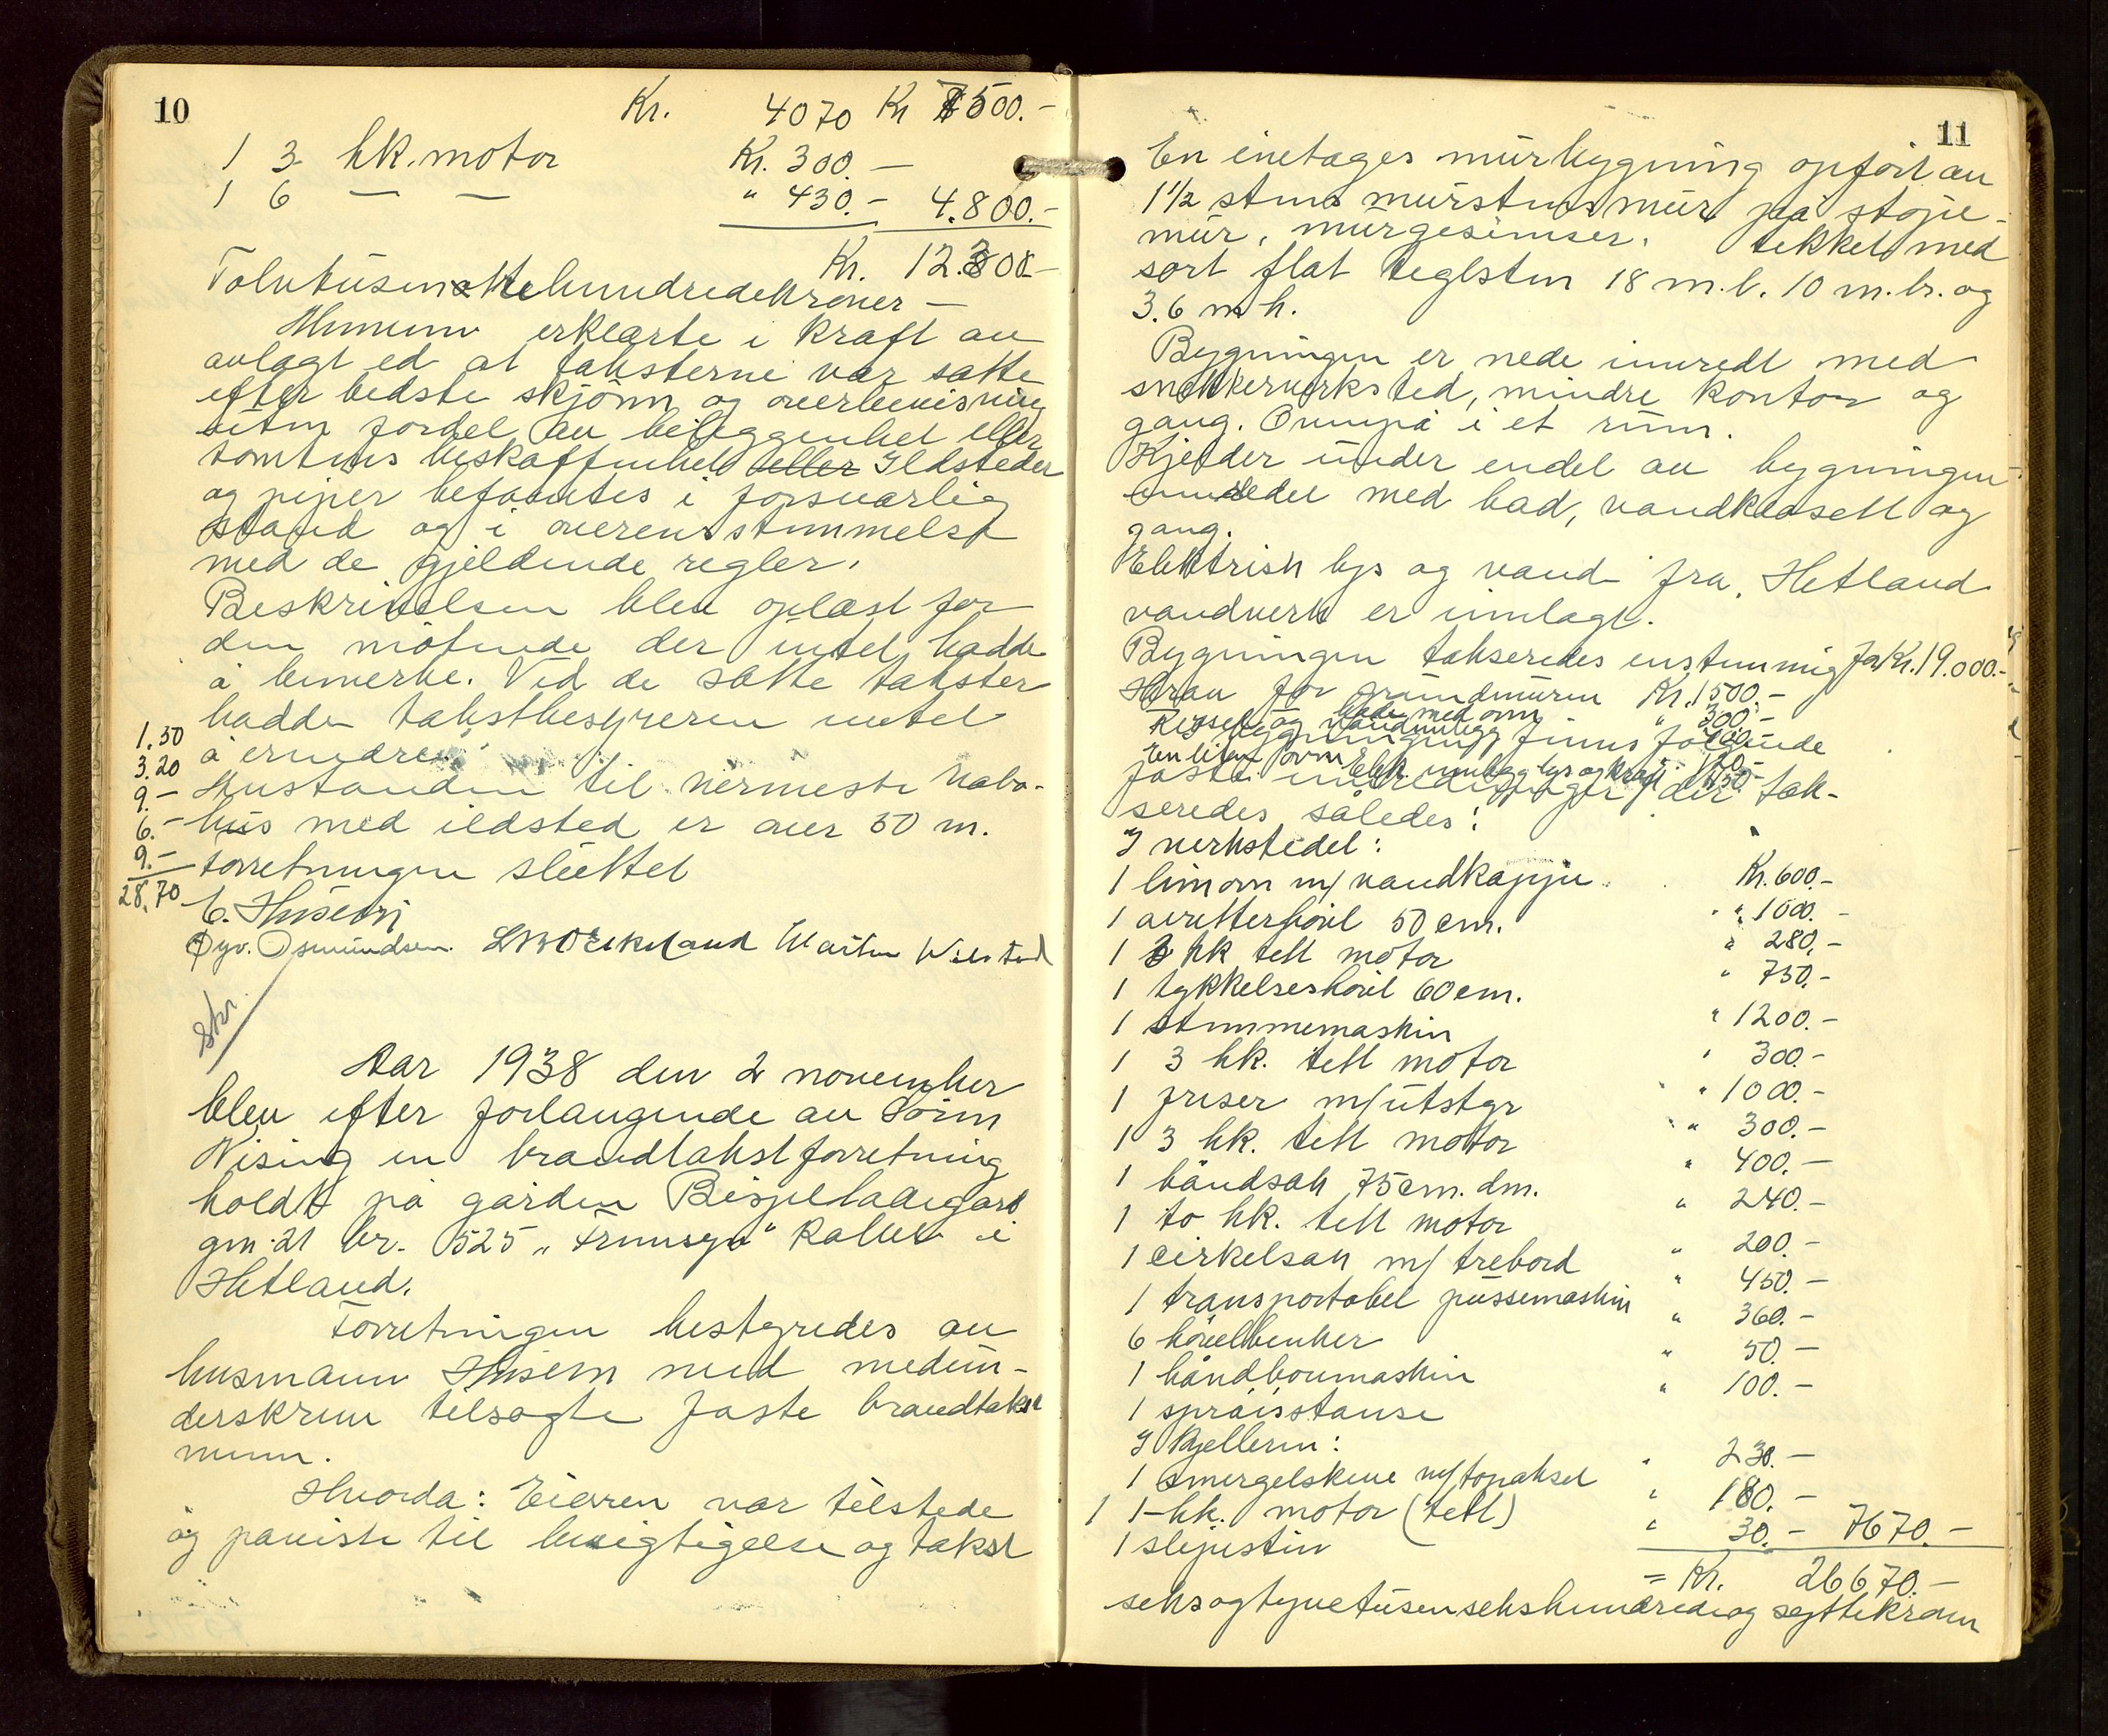 10
Kr. 4070 Kr 7500.-
1 3 hk. motor Kr. 300.-
1 6 — — " 430.- 4.800.-
Kr. 12.300.-
Mennene erklærte i kraft av
avlagt ed at taksterne var satte
efter bedste skjönn og overbevisning
uten fordel av beliggenhet eller
tomtens beskaffenhet eller Ildsteder
og piper befantes i forsvarlig
stand og i overensstemmelse
med de gjeldende regler.
Beskrivelsen blev oplæst for
den mötende der intet hadde
å bemerke. Ved de satte takster
hadde takstbestyreren intet
å erindre.
Avstanden til nermeste nabo-
hus med ildsted er over 50 m.
Forretningen sluttet
1.50
3.20
9.-
6.-
9.-
28.70
E. Husem
Öyv. Osmundsen. Martin
Skr.
Aar 1938 den 2 november
blev efter forlangende av Sören
Nising en brandtakstforretning
holdt på gården Bispeladegård
gnr. 21 br. 525 „Framsyn" kallet i
Hetland.
Forretningen bestyredes av
lensmann Husem med medun-
derskrevne tilsagte faste brandtakst
menn.
Hvorda: Eieren var tilstede
og paaviste til besigtigelse og takst
11
En enetages murbygning opfört av
1½ stens murstensmur på stöpe-
mur, murgesimser, tekket med
sort flat teglsten 18 m.l. 10 m.br. og
3.6 m h.
Bygningen er nede innredt med
snekkerverksted, mindre kontor og
gang. Ovenpå i et rum.
Kjelder under endel av bygningen
innredet med bad, vandklosett og
gang.
Elektrisk lys og vand fra Hetland
vandverk er innlagt.
Bygningen takseredes enstemmig for Kr. 19.000.-
Herav for grundmuren Kr. 1500.-
bade med ovn " 300.-
I bygningen finns fölgende
En liten ovn
Elek. innlegg lys og kraft 450.-
faste innredninger der tak-
seredes således:
I verkstedet:
1 limovn m/ vandkappe Kr. 600.-
1 avretterhövel 50 cm. " 1500.-
1 3 hk tett motor " 280.-
1 tykkelseshövel 60 cm. " 750.-
1 stemmemaskin " 1200.-
1 3 hk. tett motor " 300.-
1 freser m/ utstyr " 1000.-
1 3 hk. tett motor " 300.-
1 båndsak 75 cm. dm. " 400.-
1 to hk. tett motor " 240.-
1 cirkelsak m/ trebord " 200.-
1 transportabel pussemaskin " 450.-
6 hövelbenker " 360.-
1 håndboumaskin " 50.-
1 " 100.-
I Kjelleren:
1 smergelskive m/ topaksel " 230.-
1 1-hk. motor (tett) " 180.-
1 slipesten " 30.- 7670.-
= Kr. 26670.-
seksogtyvetusensekshundredeog syttikroner